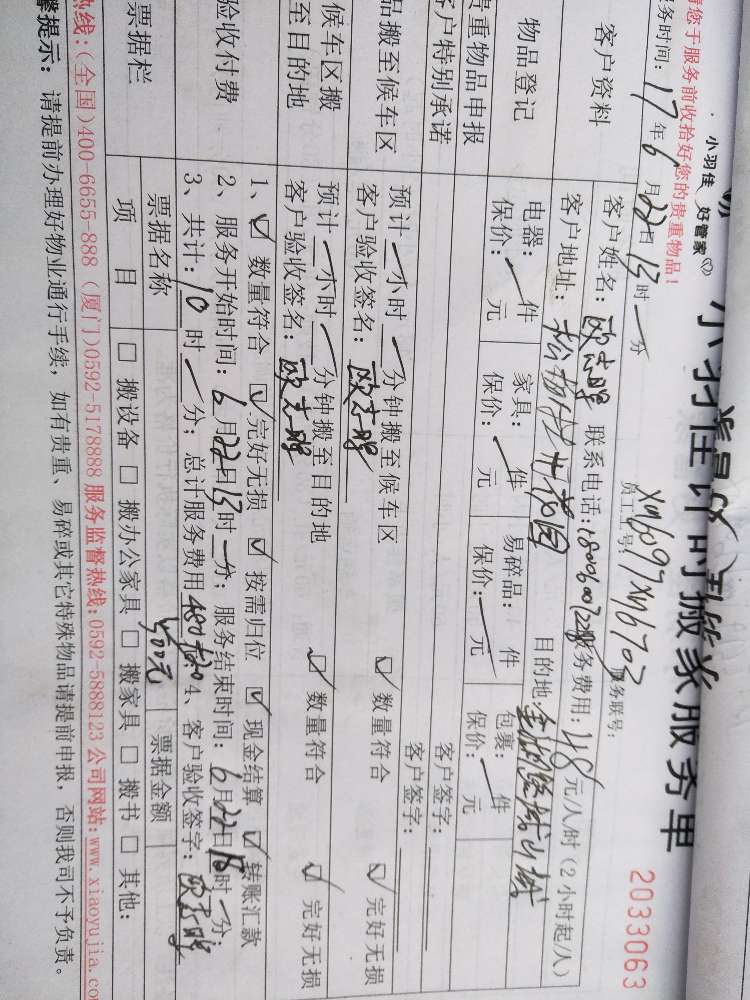 小羽佳 好管家
小羽佳计时搬家服务单
2033063
请您于服务前收拾好您的贵重物品!
员工工号: 服务联号:
服务时间: 17 年 6 月 22 日 13 时 一 分
客户资料
客户姓名: 欧志鹏 联系电话: 服务费用: 48 元/人/时 (2小时起/人)
客户地址: 目的地:
物品登记
电器: 一 件 家具: 一 件 易碎品: 一 件 包裹: 一 件
保价: 元 保价: 元 保价: 元 保价: 元
贵重物品申报 客户签字:
客户特别承诺 客户签字:
品搬至候车区
预计 一 小时 一 分钟搬至候车区 ☑ 数量符合 ☑ 完好无损
客户验收签名: 欧志鹏
候车区搬至目的地
预计 一 小时 一 分钟搬至目的地 ☑ 数量符合 ☑ 完好无损
客户验收签名: 欧志鹏
验收付费
1、☑ 数量符合 ☑ 完好无损 ☑ 按需归位 ☑ 现金结算 ☑ 转账汇款
2、服务开始时间: 6 月 22 日 13 时 一 分; 服务结束时间: 6 月 22 日 18 时 一 分;
3、共计: 10 时 一 分; 总计服务费用 480+20 4、客户验收签字: 欧志鹏
500元
票据栏
票据名称 票据金额
项 目 □ 搬设备 □ 搬办公家具 □ 搬家具 □ 搬书 □ 其他:
热线:(全国)400-6655-888 (厦门)0592-5178888 服务监督热线:0592-5888123 公司网站:www.xiaoyujia.co
馨提示: 请提前办理好物业通行手续, 如有贵重、易碎或其它特殊物品请提前申报, 否则我司不予负责。